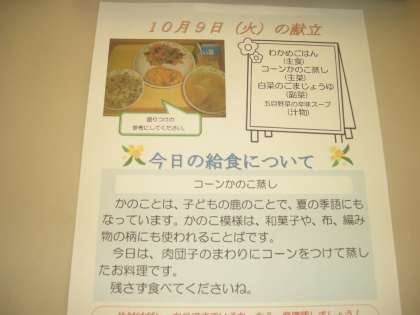 10月9日（火）の献立
わかめごはん
（主食）
コーンかのこ蒸し
（主菜）
白菜のごまじょうゆ
（副菜）
五目野菜の中味スープ
（汁物）
盛りつけの
参考にしてください。
今日の給食について
コーンかのこ蒸し
かのことは、子どもの鹿のことで、夏の季語にも
なっています。かのこ模様は、和菓子や、布、編み
物の柄にも使われることばです。
今日は、肉団子のまわりにコーンをつけて蒸し
たお料理です。
残さず食べてくださいね。